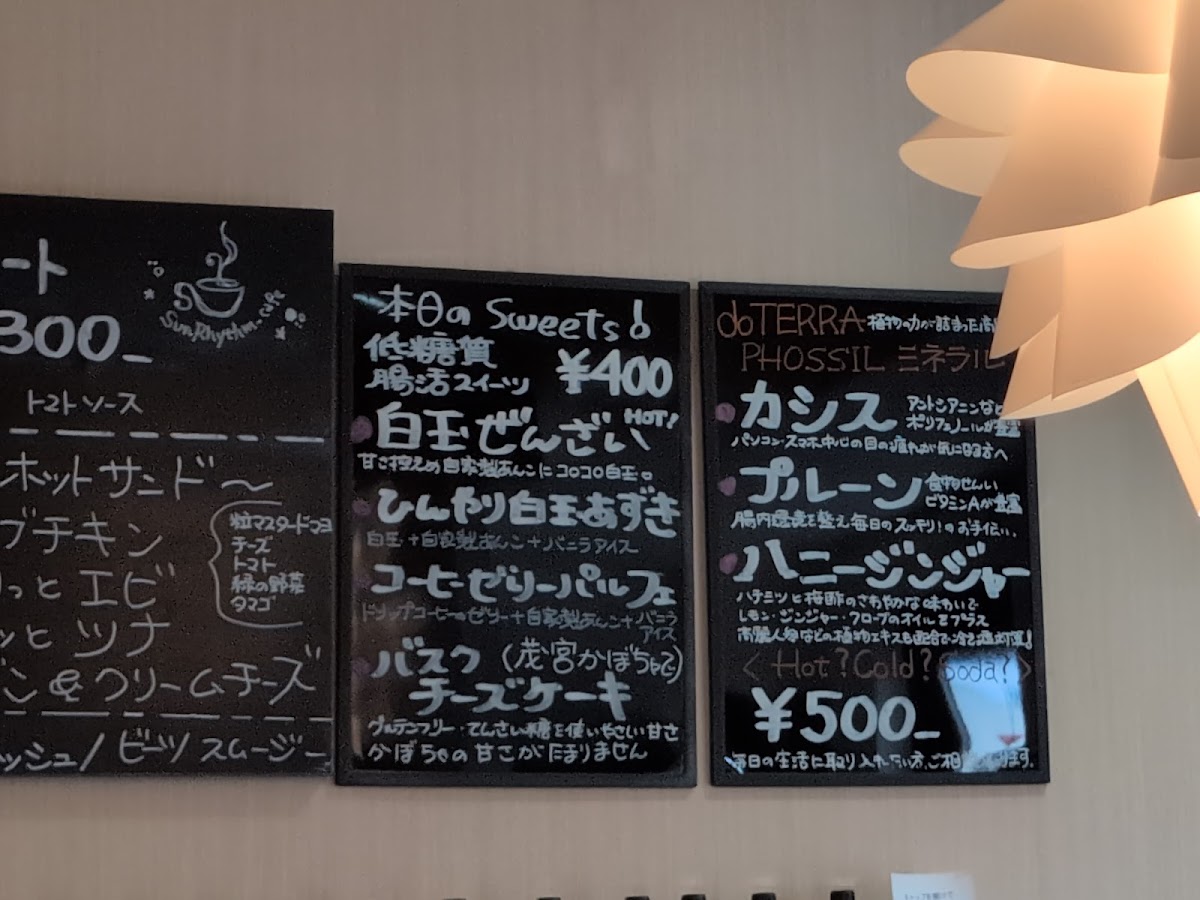 ート
300-
SunRhythm-cafe
トマトソース
ホットサンド～
ブチキン
っと エビ
っと ツナ
ン&クリームチーズ
粒マスタードマヨ
チーズ
トマト
緑の野菜
タマゴ
ッシュ/ビーツ スムージー
本日の Sweets
低糖質
腸活スイーツ
¥400
白玉ぜんざい HOT!
甘さ控えめ自家製あんこにコロコロ白玉。
ひんやり白玉あずき
白玉+自家製あんこ+バニラアイス
コーヒーゼリーパルフェ
ドリップコーヒーのゼリー+自家製あんこ+バニラ
アイス
バスク (茂宮かぼちゃ)
チーズケーキ
グルテンフリー・てんさい糖を使いやさしい甘さ
かぼちゃの甘さがたまりません
doTERRA 植物の力が詰まった
PHOSSIL ミネラル
カシス
アントシアニンなど
ポリフェノールが豊富
パソコン・スマホ中心の目の疲れが気になる方へ
プルーン
食物せんい
ビタミンAが豊富
腸内環境を整え毎日のスッキリ!のお手伝い。
ハニージンジャー
ハチミツと梅酢のさわやかな味わいで
レモン・ジンジャー・クローブのオイルをプラス
高麗人参などの植物エキスも配合で冷え対策!
<Hot?Cold?Soda?>
¥500-
毎日の生活に取り入れたい方、ご相談